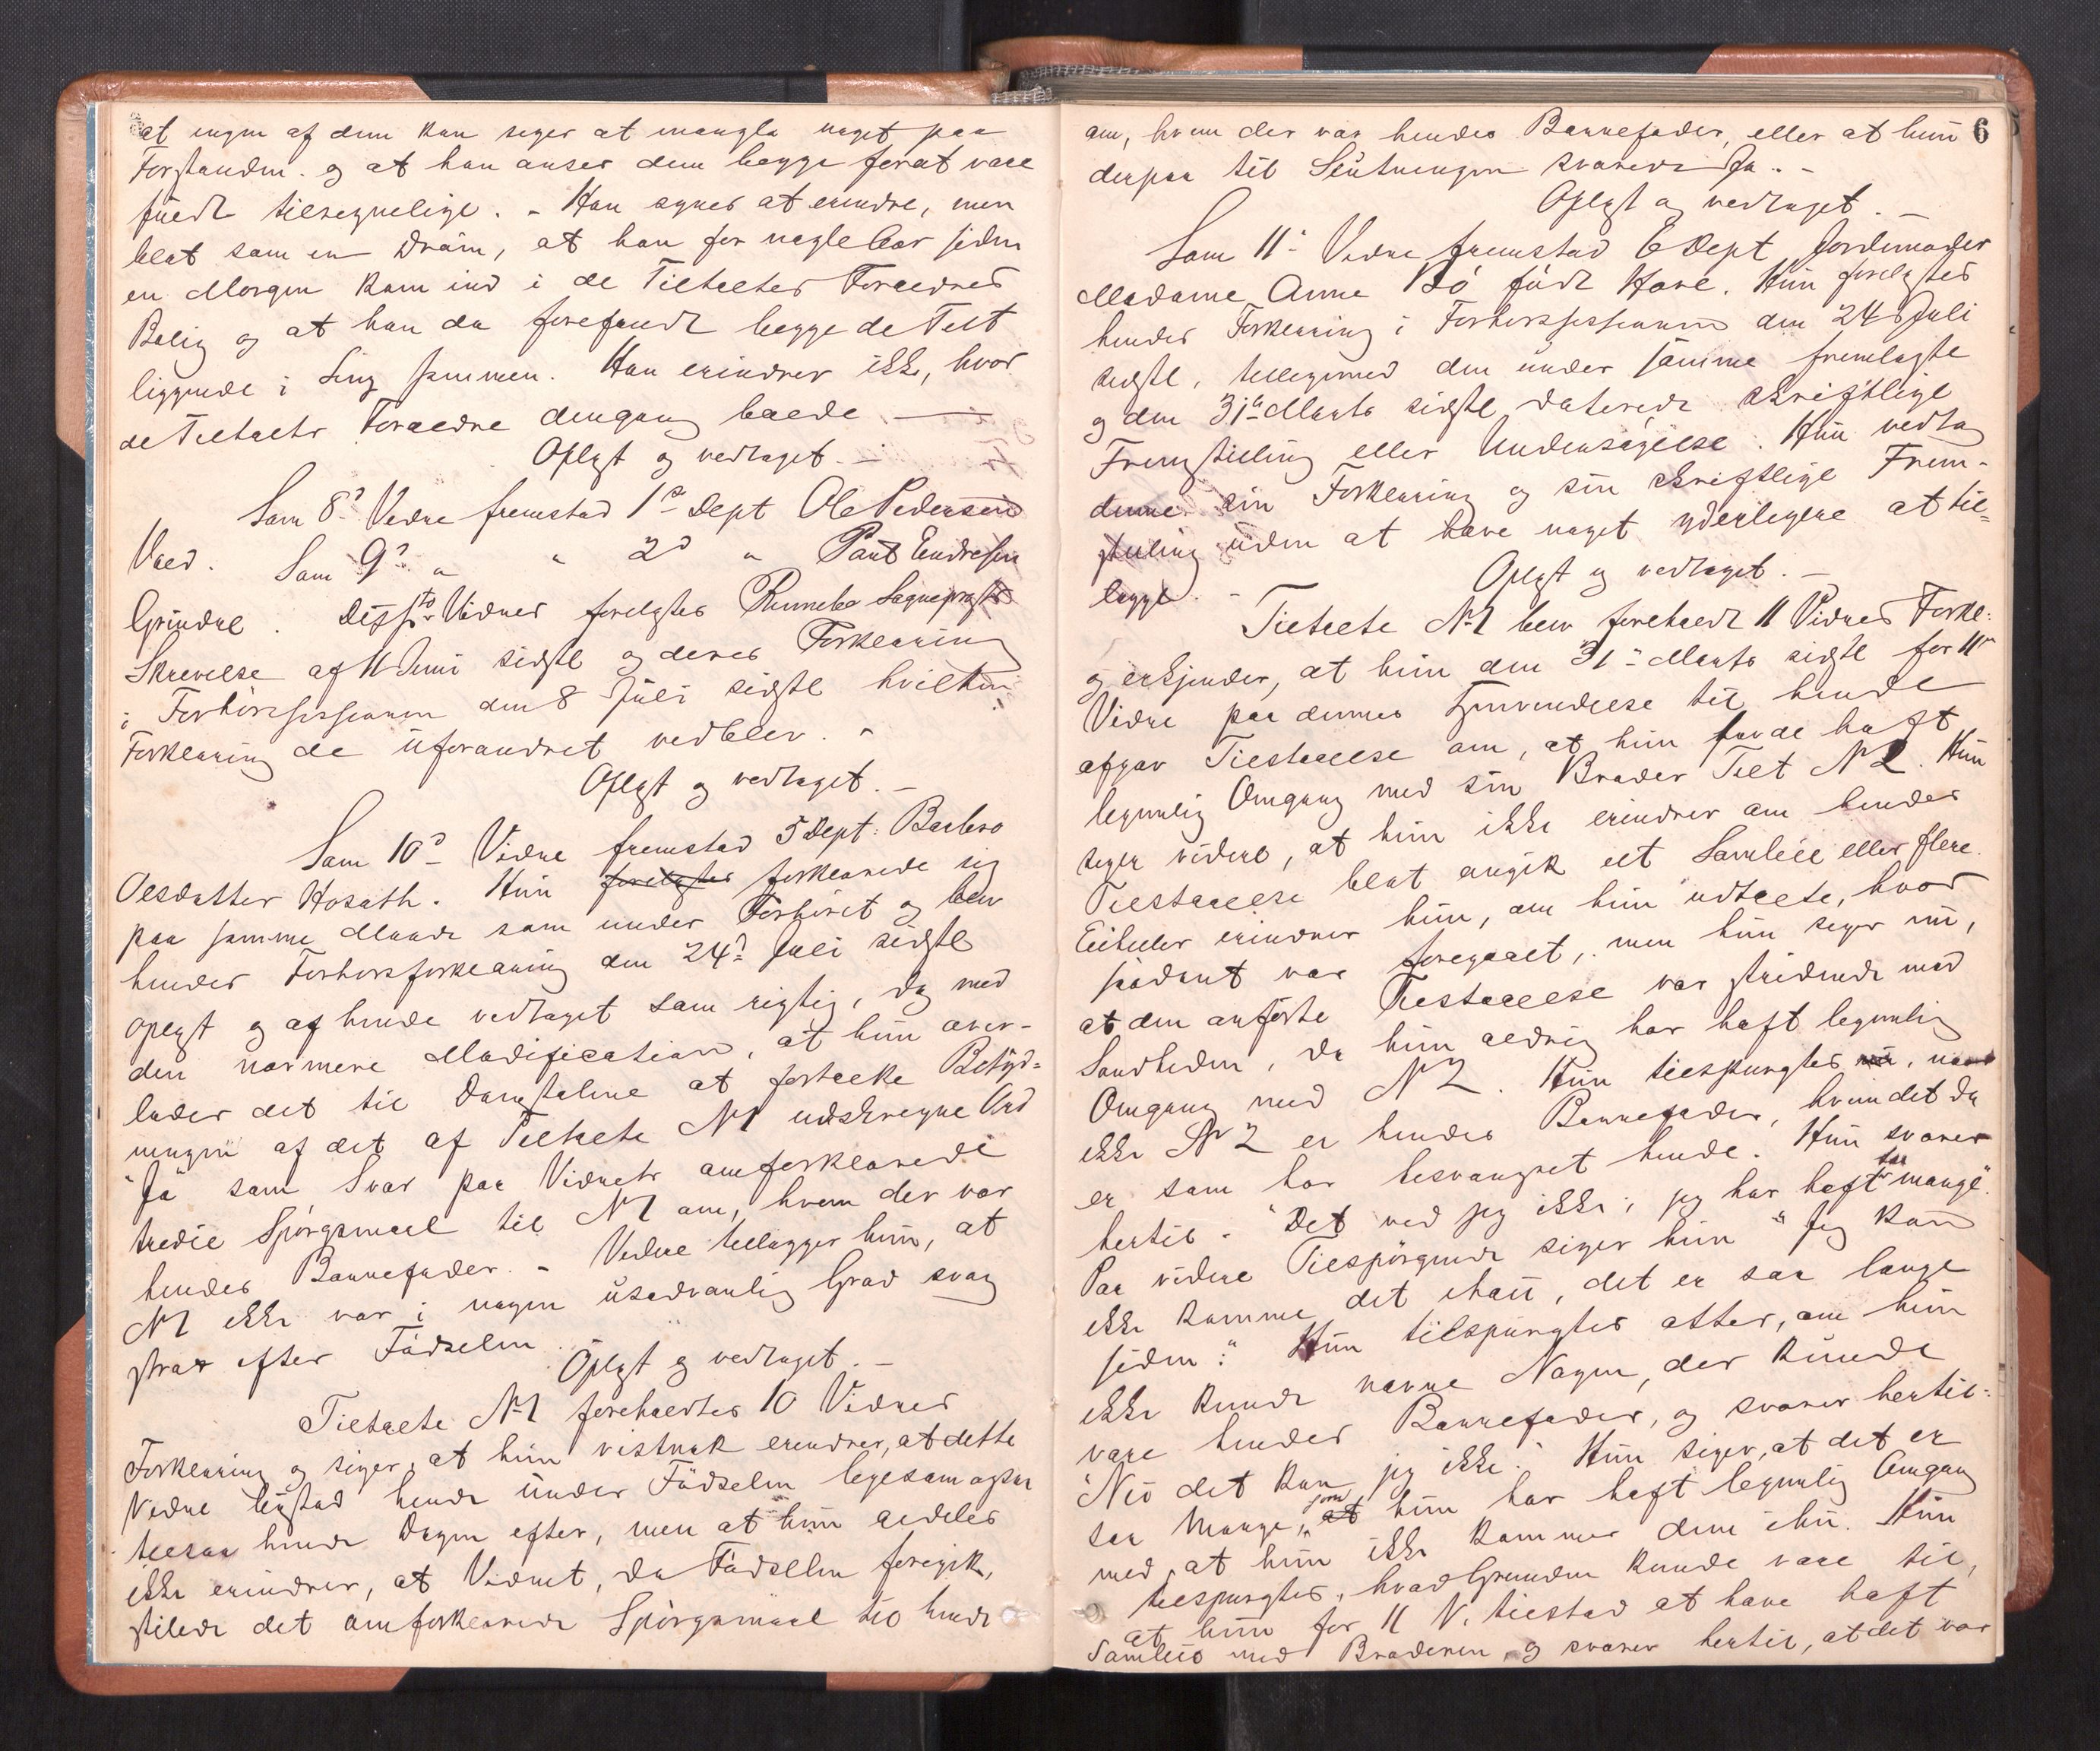 at ingen af dem kan siges at mangle noget paa
Forstanden. og at han anser dem begge forat være
fuldt tilregnelige. - Han synes at erindre, men
blot som en Dröm, at han for nogle Aar siden
en Morgen kom ind i de Tiltaltes Foraeldres
Bolig og at han da forefandt begge de Tilt
liggende i Seng sammen. Han erindrer ikke, hvor
de Tiltaltes Foraeldre dengang boede. —
Oplæst og vedtaget. —
Som 8de Vidne fremstod 1ste Dept Ole Pedersen
Vaed. Som 9de " " 2d " Paul Endresen
Grindve. Disse to Vidner forelæstes Rennebo Sogneprests
Skrivelse af 11 Juni sidstl og deres Forklaring
i Forhörssessionen den 8 Juli sidstl hvilken
Forklaring de uforandret vedblev. -
Oplæst og vedtaget. —
Som 10de Vidne fremstod 5 Dept: Barbro
Olsdatter Hosath. Hun forelæstes forklarede sig
paa samme Maade som under Forhöret og blev
hendes Forhorsforklaring den 24de Juli sidstl
oplæst og af hende vedtaget som rigtig, dog med
den nærmere Modification, at hun over-
lader det til Domstolene at fortolke Betyd-
ningen af det af Tiltalte No 1 udskregne Ord
"Ja" som Svar paa Vidnets omforklarede
tredie Spörgsmaal til No 1 om, hvem der var
hendes Barnefader. - Vidnet tillægger hun, at
No 1 ikke var i nogen usædvanlig Grad svag
strax efter Födselen.
Oplæst og vedtaget. —
Tiltalte No 1 foreholdtes 10 Vidnes
Forklaring og siger, at hun vistnok erindrer, at dette
Vidne bistod hende under Födselen ligesom ogsaa
tilsaa hende Dagen efter, men at hun aldeles
ikke erindrer, at Vidnet, da Födselen foregik,
stillede det omforklarede Spörgsmaal til hende
6
om, hvem der var hendes Barnefader, eller at hun
derpaa til Slutningen svarede Ja. -
Oplæst og vedtaget. —
Som 11te Vidne fremstod 6 Dept Jordemoder
Madame Anne Bö födt Hove. Hun forelæstes
hendes Forklaring i Forhorssessionen den 24 Juli
sidstl, tilligemed den under samme fremlagte
og den 31te Marts sidstl daterede skriftlige
Fremstilling eller Undersögelse. Hun vedtog
denne sin Forklaring og sin skriftlige Frem-
stilling uden at have noget yderligere at til-
lægge. -
Oplæst og vedtaget. —
Tiltalte No 1 blev foreholdt 11 Vidnes Forkl:
og erkjender, at hun den 31te Marts sidstl for 11te
Vidne paa dennes Henvendelse til hende
afgav Tilstaaelse om, at hun havde haft
legemlig Omgang med sin Broder Tilt No 2. Hun
siger videre, at hun ikke erindrer om hendes
Tilstaaelse blot angik eet Samleie eller flere.
Eiheller erindrer hun, om hun udtalte, hvor
saadant var foregaaet, men hun siger nu,
at den anförte Tilstaaelse var stridende mod
Sandheden, da hun aldrig har haft legemlig
Omgang med No 2. Hun tilspurgtes nu, naar
ikke No 2 er hendes Barnefader, hvem det da
er som har besvangret hende. Hun svarer
hertil. "Det ved jeg ikke; jeg har haft saa mange".
Paa videre Tilspörgende siger hun "Jeg kan
ikke komme det ihau, det er saa lange
siden." Hun tilspurgtes atter, om hun
ikke kunde nævne Nogen, der kunde
vare hendes Barnefader, og svarer hertil:
"Nei det kan jeg ikke." Hun siger, at det er
saa Mange, som at hun har haft legemlig Omgang
med, at hun ikke kommer dem ihu. Hun
tilspurgtes, hvad Grunden kunde vare til,
at hun for 11 V. tilstod at have haft
Samleie med Broderen, og svarer hertil, at det var